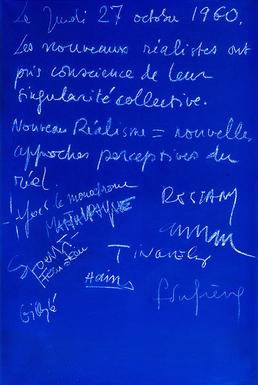 Le Jeudi 27 octobre 1960.
Les nouveaux réalistes ont
pris conscience de leur
singularité collective.
Nouveau Réalisme = nouvelles
approches perceptives du
réel.
Yves le monochrome
RESTANY
TINGUELY
Hains